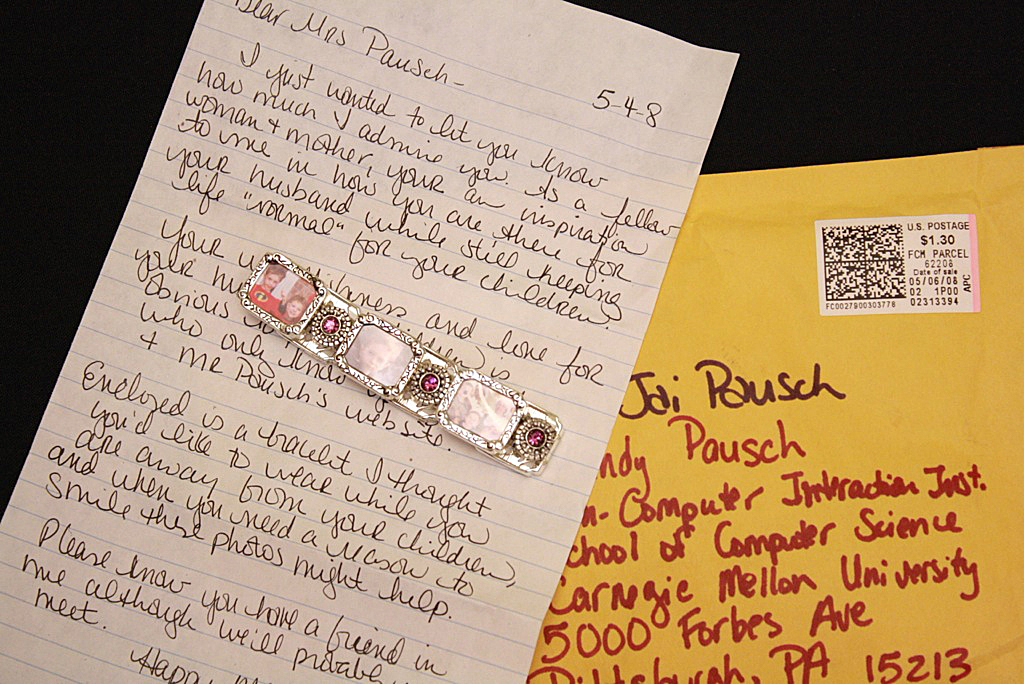 Dear Mrs Pausch-
5-4-8
I just wanted to let you know
how much I admire you. As a fellow
woman + mother, your an inspiration
to me in how you are there for
your husband while still keeping
life "normal" for your children.
Your and love for
your is
obvious for
who only know
+ me Pausch's website.
Enclosed is a bracelet I thought
you'd like to wear while you
are away from your children,
and when you need a reason to
smile these photos might help.
Please know you have a friend in
me although we'll
meet.
Happy
U.S. POSTAGE
$1.30
FCM PARCEL
62208
Date of sale
05/06/08
02 1P00
02313394
APC
FC0027900303778
Jai Pausch
ndy Pausch
n-Computer Interaction Inst.
chool of Computer Science
Carnegie Mellon University
5000 Forbes Ave
Pittsburgh, PA 15213